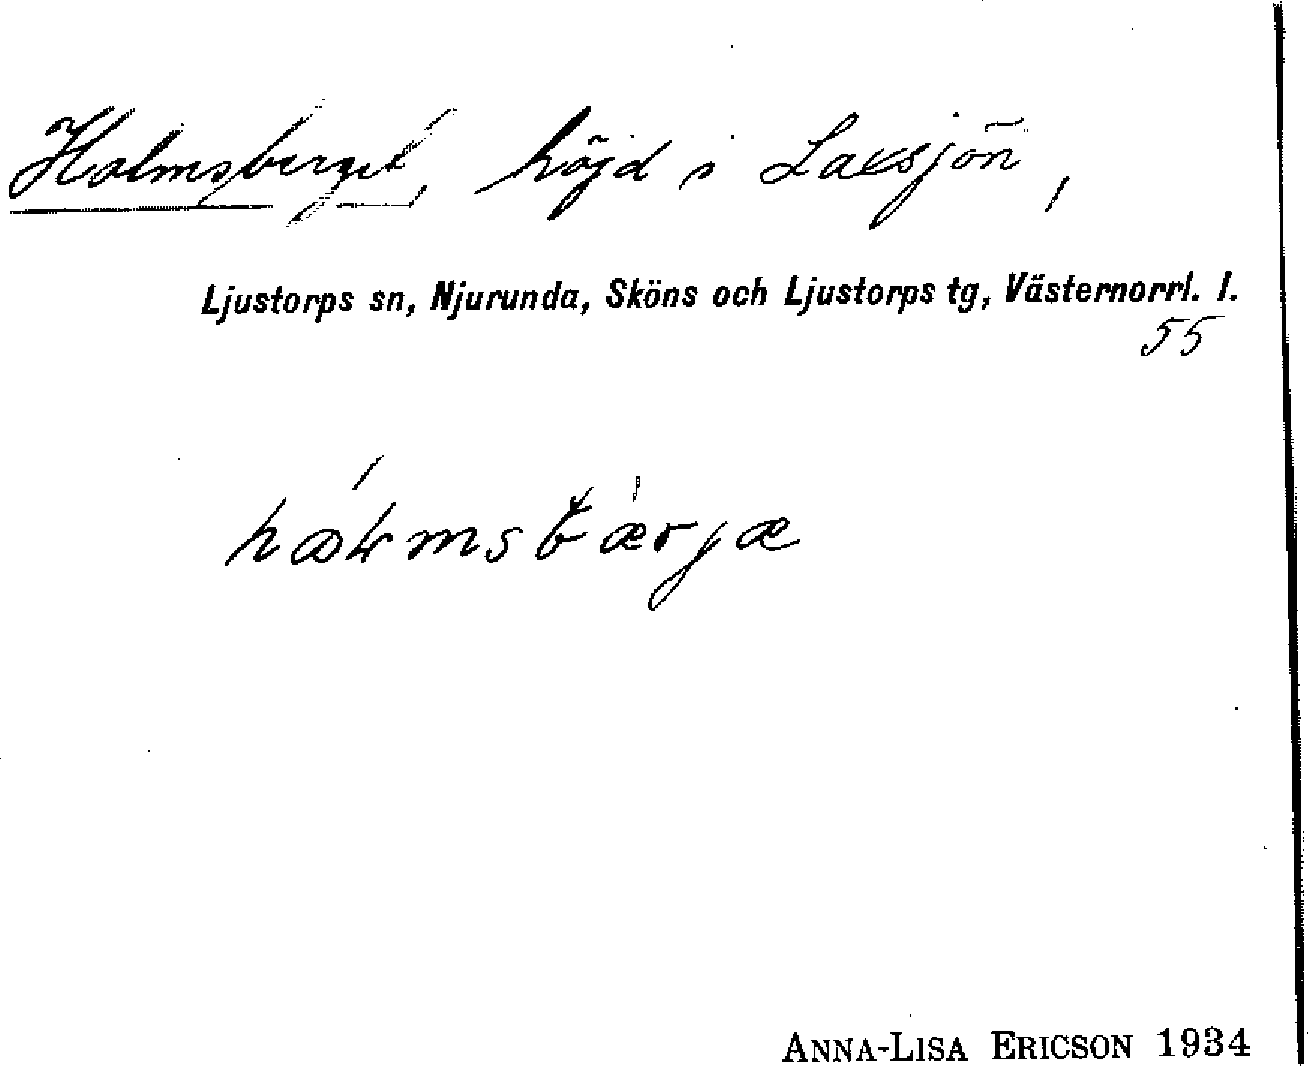 Holmsberget, höjd i Laxsjön,
Ljustorps sn, Njurunda, Sköns och Ljustorps tg, Västernorrl. l.
55
ANNA-LISA ERICSON 1934